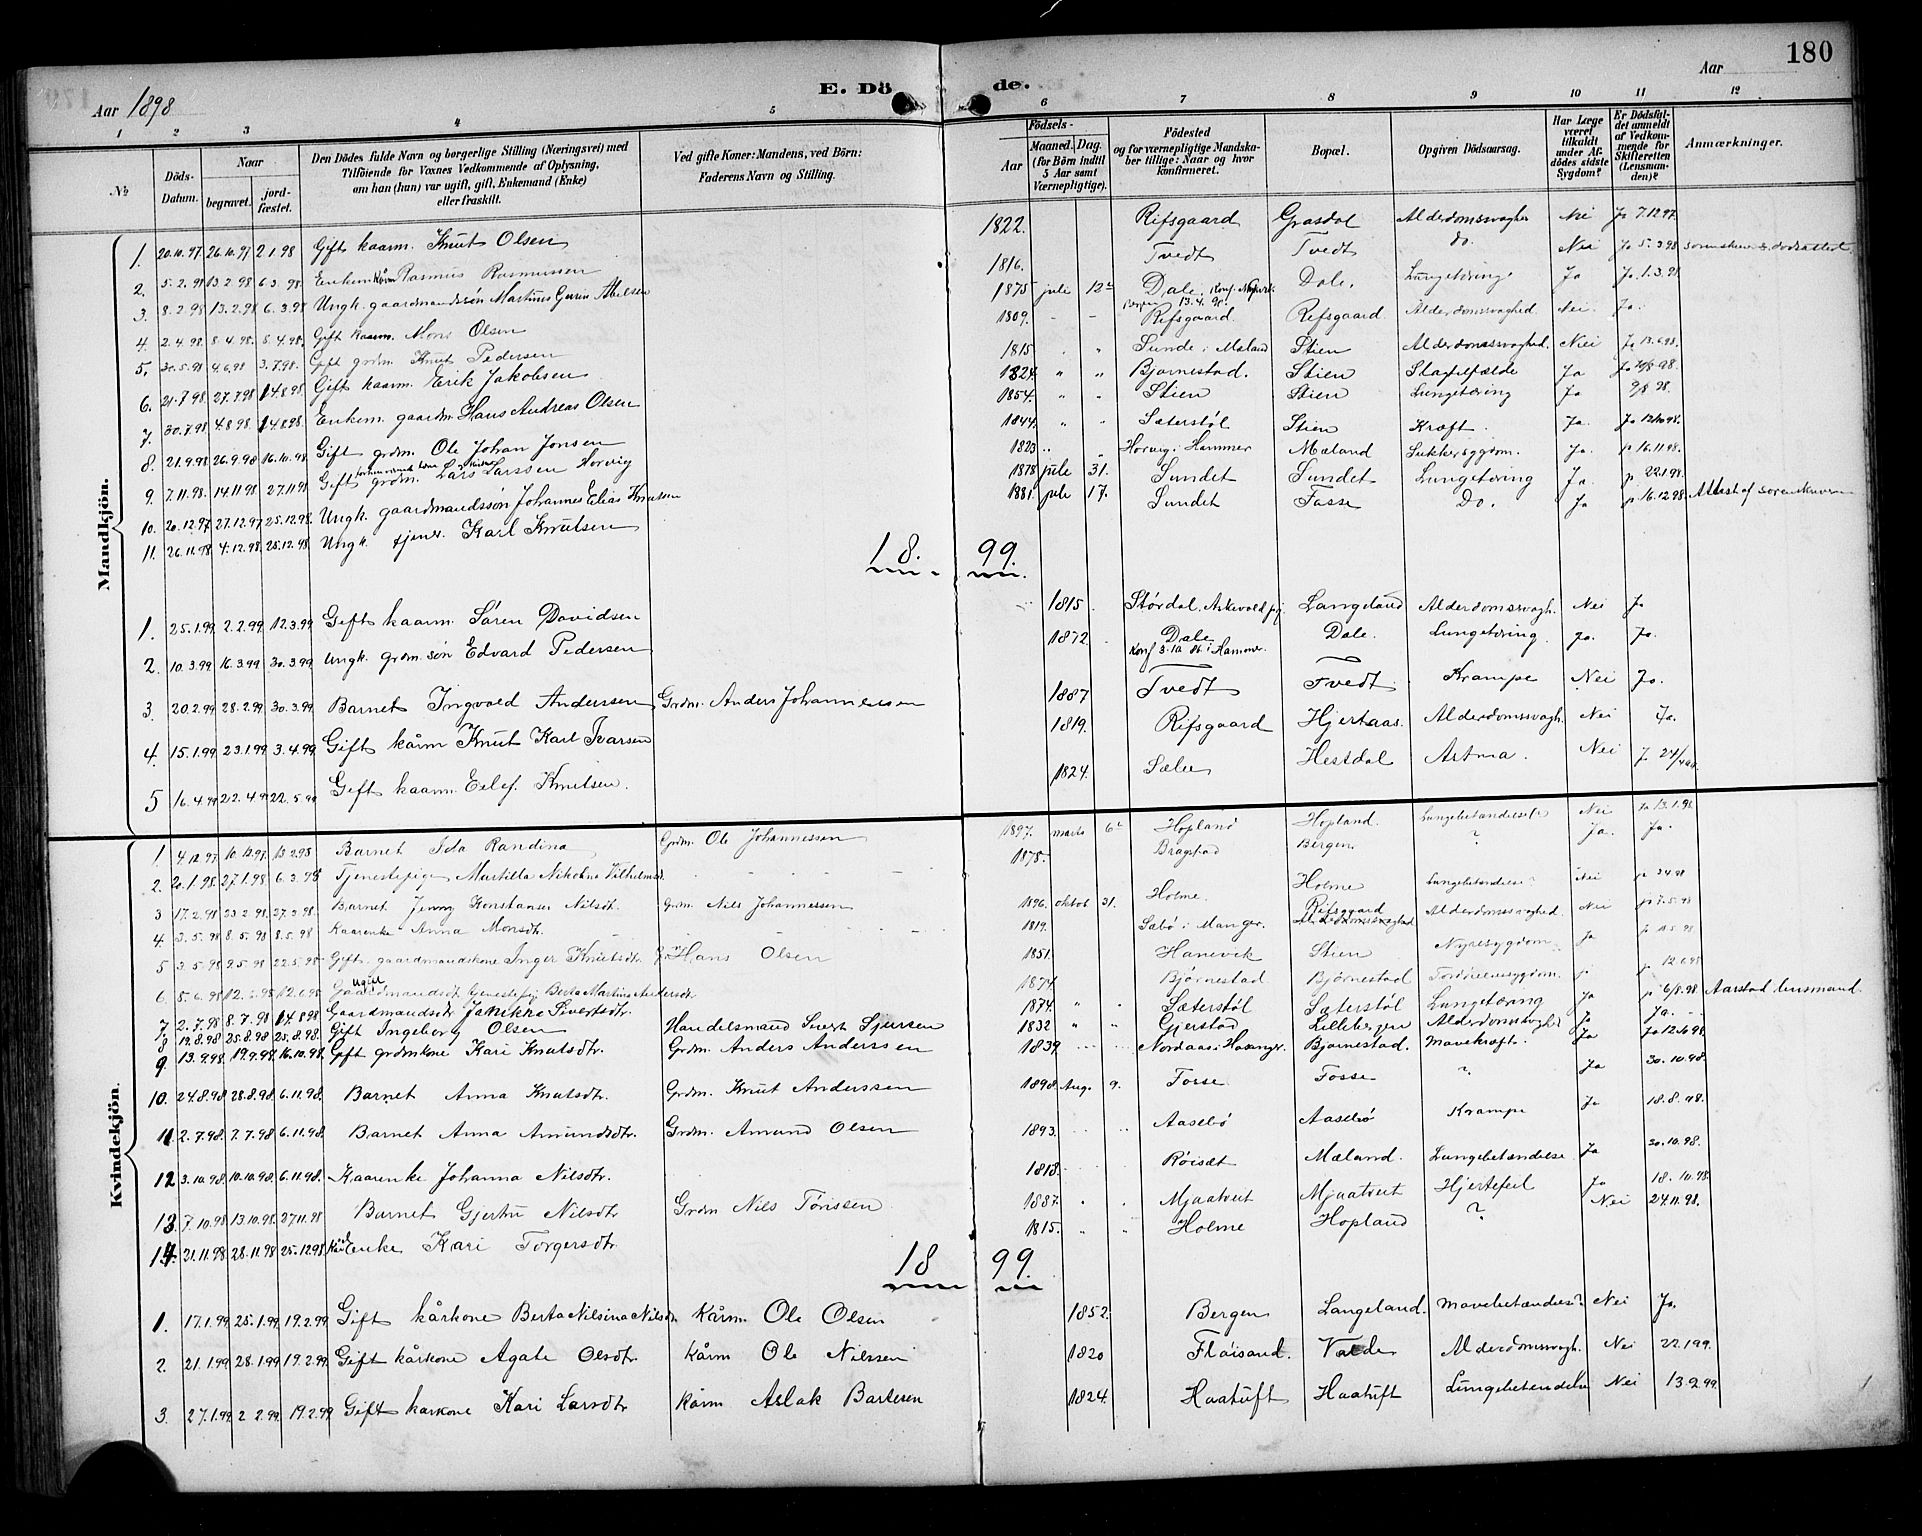 180
Aar 1898
E. Dö de.
Aar
1 2 3 4 5 6 7 8 9 10 11 12
№
Döds-Datum.
Naar
begravet.
jord-fæstet.
Den Dödes fulde Navn og borgerlige Stilling (Næringsvei) med Tilföiende for Voxnes Vedkommende af Oplysning, om han (hun) var ugift, gift, Enkemand (Enke) eller fraskilt.
Ved gifte Koner: Mandens, ved Börn: Faderens Navn og Stilling.
Födsels-
Aar
Maaned. Dag. (for Börn indtil 5 Aar samt Værnepligtige).
Födested og for værnepligtige Mandskaber tillige: Naar og hvor konfirmeret.
Bopæl.
Opgiven Dödsaarsag.
Har Læge været tilkaldt under Afdödes sidste Sygdom?
Er Dödsfaldet anmeldt af Vedkommende for Skifteretten (Lensmanden)?
Anmærkninger.
Mandkjön.
1. 20.10.97 26.10.97 2.1.98 Gift kaarm. Knut Olsen 1822. Rifsgaard Grasdal Alderdomssvaghed Nei Ja 7.12.97
2. 5.2.98 13.2.98 6.3.98 Enkem. Kårm Rasmus Rasmussen 1816. Tvedt Tvedt do. Nei Ja 5.3.98
3. 8.2.98 13.2.98 6.3.98 Ungk. gaardmandssøn Martinus Abelsen 1875 juli 12te Dale. Konf. 13.4.90 Dale. Lungetæring Ja Ja 1.3.98
4. 2.4.98 8.4.98 8.4.98 Gift kaarm. Mons Olsen 1809. - - Rifsgaard. Rifsgaard Alderdomsvaghed. Nei. Ja.
5. 30.5.98 4.6.98 3.7.98. Gift grdm. Knut Pedersen 1815 " " Sunde i Mæland Stien Alderdomssvaghed. Nei Ja 13.6.98.
6. 21.7.98 27.7.98 14.8.98 Gift kaarm. Erik Jakobsen 1824. " " Bjørnestad. Stien Slagtilfælde Ja Ja 10/8-98.
7. 30.7.98 4.8.98. 14.8.98 Enkem. gaardm. Hans Andreas Olsen 1854. " " Stien Stien Lungetæring Ja 9/8 98.
8. 21.9.98 26.9.98 16.10.98 Gift grdm. Ole Johan Jonsen 1844. " " Sæterstøl Stien Kræft. Ja. Ja 12.10.98.
9. 7.11.98. 14.11.98 27.11.98 Gift grdm. Lars Larssen Horvig 1823 " " Horvig i Hammer Mæland Sukkersygdom. Ja. ja 16.11.98.
10. 20.12.97 27.12.97 25.12.98. Ungk. gaardmandssøn Johannes Elias Knutsen 1878 juli 31. Sundet Sundet Lungetæring Ja. ja 22.1.98.
11. 26.11.98 4.12.98. 25.12.98 Ungk. tjener. Karl Knutsen 1881. juli 17. Sundet Fosse Do. Ja ja 16.12.98 Attest af sorenskriveren
18. 99.
1. 25.1.99 2.2.99 12.3.99 Gift kaarm. Søren Davidsen 1815 Størdal. Askevold pgj. Langeland Alderdomssvagh. Nei Ja
2 10.3.99 16.3.99 30.3.99 Ungk. grdm.søn Edvard Pedersen 1872 Dale Konf 3.10 86 i Hammer. Dale. Lungetæring. Ja. Ja.
3. 20.2.99 28.2.99 30.3.99 Barnet Ingvald Anderssen Grdm. Anders Johannessen 1887 Tvedt Tvedt Krampe Nei Ja.
4. 15.1.99 23.1.99 3.4.99 Gift kårm Knut Karl Ivarsen 1819. Rifsgaard Hjertaas. Alderdomssvagh. Nei Ja.
5 16.4.99 22.4.99 22.5.99 Gift kaarm. Eilef. Knutsen. 1824. Sælen Hestdal Astma. Nei
Kvindekjön.
1. 4.12.97 10.12.97 13.2.98 Barnet Ida Randina Grdm. Ole Johannessen 1897. marts 6te Hopland Hopland. Lungebetændelse? Nei Ja 13.1.98
2. 20.1.98 27.1.98 6.3.98 Tjenestepige Martilla Nikoline Vilhelmsd. 1878. Bragstad Bergen ? Ja. Ja.
3 17.2.98 23.2.98. 27.3.98 Barnet Jenny Konstanse Nilsdt. Grdm. Nils Johannessen 1896. oktob 31. Holme. Holme Lungebetændelse? Nei ja 2.4.98
4. 3.5.98 8.5.98 8.5.98 Kaarenke Anna Monsdt. 1819. Sæbø i Manger. Rifsgaard Alderdomssvaghed. Nei ja 7.5.98
5 3.5.98 9.5.98 22.5.98 Gift. gaardmandskone Inger Knutsdt. g. Hans Olsen 1851. Hanevik Stien Nyresygdom Ja
6. 5.6.98 12.6.98 12.6.98 ugift Gaardmandsdt. tjenestepig Berta Martina Andersdt. 1874 Bjørnestad Bjørnestad ja ja 12.6.98
7. 2.7.98 8.7.98 14.8.98 Gaardmandsdt. Jakikke Sivertsdtr. 1874. " " Sæterstøl Sæterstøl Lungetæring Ja ja 6/8.98 Aarstad lensmand.
8 19.8.98 25.8.98 25.8.98. Gift Ingeborg Olsen Handelsmand Sivert Sjursen 1832 " " Gjerstad Lillebergen Alderdomssvaghed Ja Ja.
9 13.9.98 19.9.98 16.10.98. Gift grdmkone Kari Knutsdtr. Grdm. Anders Anderssen 1839 Nordaas i Hosanger. Bjørnestad. Mavekræft. Ja Ja 12.10.98
10. 24.8.98 28.8.98 6.11.98. Barnet Anna Knutsdtr. Grdm. Knut Anderssen 1898. Aug. 9. Fosse Fosse ? Ja 30.10.98.
11 2.7.98 7.7.98 6.11.98. Barnet Anna Amundsdtr. Grdm. Amund Olsen 1893. Aasebø Aasebø Krampe Ja 18.8.98.
12 3.10.98 10.10.98 6.11.98. Kaarenke Johanna Nilsdtr. 1813. Røisæt Mæland. Lungebetændelse Ja 30.10.98.
13 7.10.98 13.10.98 27.11.98 Barnet Gjertru Nilsdtr Grdm Nils Tørissen 1887. Mjaatveit Mjaatveit Hjertefeil Ja 18.10.98
14. 21.11.98 28.11.98 25.12.98 Kår Enke Kari Torgersdtr. 1815. " " Holme Hopland ? Nei 24.11.98.
18 99.
1. 17.1.99 25.1.99 19.2.99 Gift kårkone Berta Nilsina Nilsdtr Kårm. Ole Olsen 1852. Bergen Langeland. Mavebetændelse? Nei Ja.
2. 21.1.99 28.1.99 19.2.99. Gift kårkone Agate Olsdtr kårm Ole Nilssen 1820 Fløisand. Valde Alderdomssvagh. Nei 22.1.99.
3. 27.1.99 2.2.99. 19.2.99 Gift kårkone Kari Larsdtr kårm Aslak Bartesen 1824. Haatuft Haatuft Lungebetændelse Nei 13.2.99.